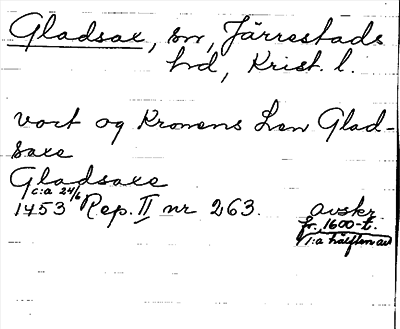 Gladsax, sn, Järrestads
hd, Krist. l.
vort og Kronens Len Glad-
saxe
Gladsaxe
c:a 24/6
1453 Rep. II nr 263. avskr.
fr. 1600-t.
1:a hälften av